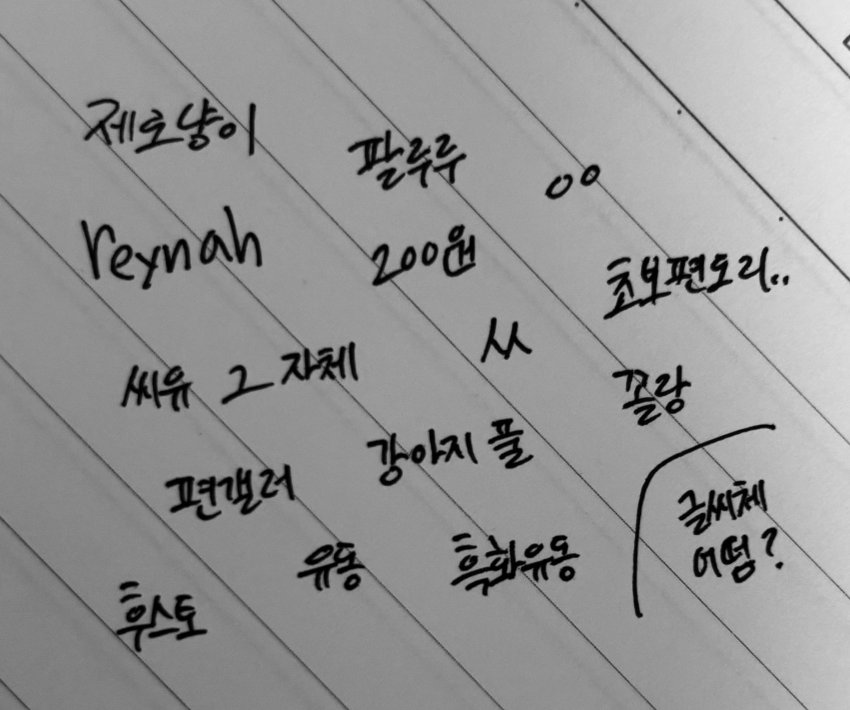 제로냥이
팔루루
ㅇㅇ
reynah
200원
초보편도리..
씨유 그 자체
ㅆ
꼴랑
편갤러
강아지 풀
글씨체
어떰?
유동
흑화유동
후스토